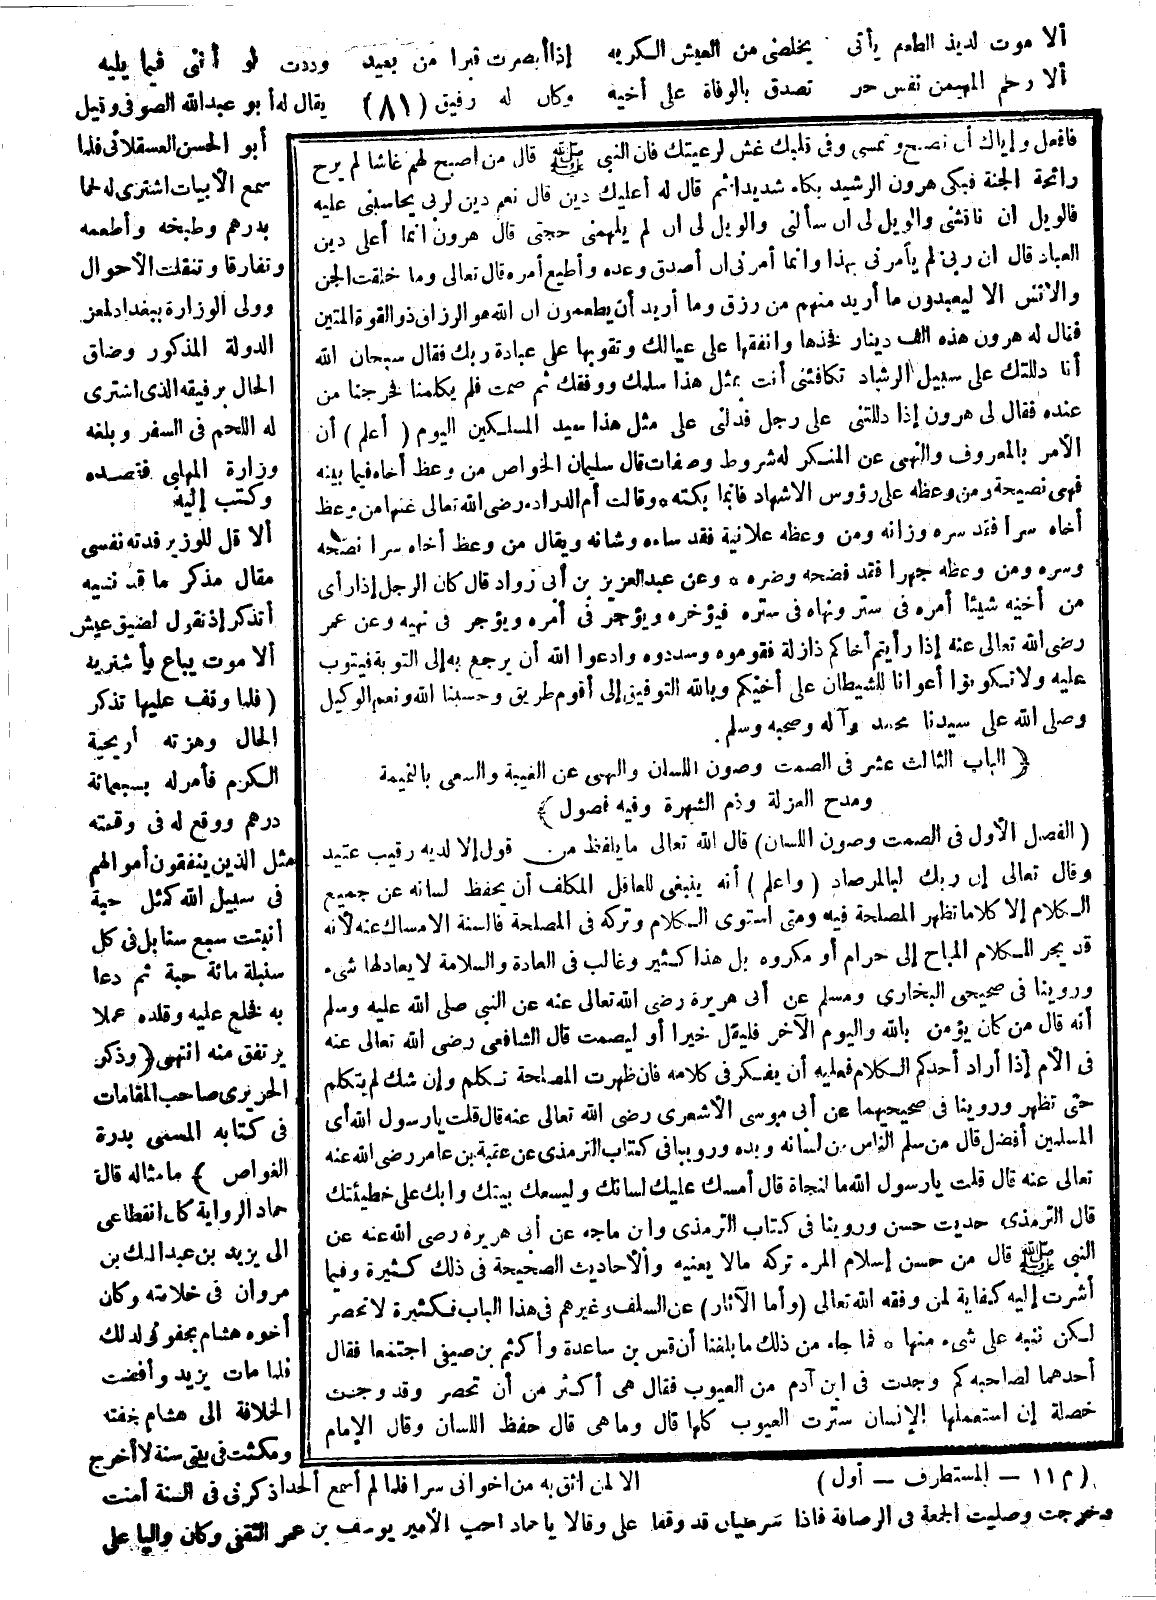 ألا موت لذيذ الطعم يأتى يخلصنى من العيش الكريه إذا أبصرت قبرا من بعيد وددت لو أننى فيما يليه
ألا رحم المهيمن نفس حر تصدق بالوفاة على أخيه وكان له رفيق (٨١) يقال له أبو عبدالله الصوفى وقيل
فافعل وإياك أن تصبح وتمسى وفى قلبك غش لرعيتك فان النبى ﷺ قال من أصبح لهم غاشا لم يرح
رائحة الجنة فبكى هرون الرشيد بكاء شديدا ثم قال له أعليك دين قال نعم دين لربى يحاسبنى عليه
فالويل ان ناقشنى والويل لى ان سألنى والويل لى ان لم يلهمنى حجتى قال هرون انما أعلى دين
العباد قال ان ربى لم يأمرنى بهذا وانما أمرنى ان أصدق وعده وأطيع أمره قال تعالى وما خلقت الجن
والانس الا ليعبدون ما أريد منهم من رزق وما أريد أن يطعمون ان الله هو الرزاق ذو القوة المتين
فقال له هرون هذه الف دينار فخذها وانفقها على عيالك وتقوبها على عبادة ربك فقال سبحان الله
أنا دللتك على سبيل الرشاد تكافئنى أنت بمثل هذا سلمك ووفقك ثم صمت فلم يكلمنا فخرجنا من
عنده فقال لى هرون إذا دللتنى على رجل فدلنى على مثل هذا سيد المسلمين اليوم (أعلم) أن
الأمر بالمعروف والنهى عن المنكر له شروط وصفات قال سليمان الخواص من وعظ أخاه فيما بينه
فهى نصيحة ومن وعظه على رؤوس الاشهاد فانما بكته * وقالت أم الدرداء رضى الله تعالى عنها من وعظ
أخاه سرا فقد سره وزانه ومن وعظه علانية فقد ساءه وشانه ويقال من وعظ أخاه سرا نصحه
وسره ومن وعظه جهرا فقد فضحه وضره * وعن عبدالعزيز بن أبى زواد قال كان الرجل إذا رأى
من أخيه شيئا أمره فى ستر ونهاه فى ستره فيؤخره ويؤجر فى أمره ويؤجر فى نهيه وعن عمر
رضى الله تعالى عنه إذا رأيتم أخاكم ذا زلة فقوموه وسددوه وادعوا الله أن يرجع به إلى التوبة فيتوب
عليه ولا تكونوا أعوانا للشيطان على أخيكم وبالله التوفيق إلى أقوم طريق وحسبنا الله ونعم الوكيل
وصلى الله على سيدنا محمد وآله وصحبه وسلم.
﴿الباب الثالث عشر فى الصمت وصون اللسان والنهى عن الغيبة والسعى بالنميمة
ومدح العزلة وذم الشهرة وفيه فصول﴾
(الفصل الأول فى الصمت وصون اللسان) قال الله تعالى ما يلفظ من قول إلا لديه رقيب عتيد
وقال تعالى إن ربك لبالمرصاد (واعلم) أنه ينبغى للعاقل المكلف أن يحفظ لسانه عن جميع
الكلام إلا كلاما تظهر المصلحة فيه ومتى استوى الكلام وتركه فى المصلحة فالسنة الامساك عنه لأنه
قد يجر الكلام المباح إلى حرام أو مكروه بل هذا كثير وغالب فى العادة والسلامة لا يعادلها شىء
وروينا فى صحيحى البخارى ومسلم عن أبى هريرة رضى الله تعالى عنه عن النبى صلى الله عليه وسلم
أنه قال من كان يؤمن بالله واليوم الآخر فليقل خيرا أو ليصمت قال الشافعى رضى الله تعالى عنه
فى الأم إذا أراد أحدكم الكلام فعليه أن يفكر فى كلامه فان ظهرت المصلحة تكلم وإن شك لم يتكلم
حتى تظهر وروينا فى صحيحيهما عن أبى موسى الأشعرى رضى الله تعالى عنه قال قلت يا رسول الله أى
المسلمين أفضل قال من سلم الناس من لسانه ويده وروينا فى كتاب الترمذى عن عقبة بن عامر رضى الله عنه
تعالى عنه قال قلت يارسول الله ما لنجاة قال أمسك عليك لسانك وليسعك بيتك وابك على خطيئتك
قال الترمذى حديث حسن وروينا فى كتاب الترمذى وابن ماجه عن أبى هريرة رضى الله عنه عن
النبى ﷺ قال من حسن إسلام المرء تركه مالا يعنيه والأحاديث الصحيحة فى ذلك كثيرة وفيما
أشرت إليه كفاية لمن وفقه الله تعالى (وأما الآثار) عن السلف وغيرهم فى هذا الباب فكثيرة لا تحصر
لكن ننبه على شىء منها * فما جاء من ذلك ما بلغنا أن قس بن ساعدة وأكثم بن صيفى اجتمعا فقال
أحدهما لصاحبه كم وجدت فى ابن آدم من العيوب فقال هى أكثر من أن تحصر وقد وجدت
خصلة إن استعملها الإنسان سترت العيوب كلها قال وما هى قال حفظ اللسان وقال الإمام
أبو الحسن العسقلانى فلما
سمع الأبيات اشترى له لحما
بدرهم وطبخه وأطعمه
وتفارقا وتنقلت الأحوال
وولى الوزارة ببغداد لمعز
الدولة المذكور وضاق
الحال برفيقه الذى اشترى
له اللحم فى السفر وبلغه
وزارة المهلبى فقصده
وكتب إليه
ألا قل للوزير فدته نفسى
مقال مذكر ما قد نسيه
أتذكر إذ تقول لضيق عيش
ألا موت يباع فأشتريه
(فلما وقف عليها تذكر
الحال وهزته أريحية
الكرم فأمر له بسبعمائة
درهم ووقع له فى رقعته
مثل الذين ينفقون أموالهم
فى سبيل الله كمثل حبة
أنبتت سبع سنابل فى كل
سنبلة مائة حبة ثم دعا
به فخلع عليه وقلده عملا
يرتفق منه انتهى ﴿وذكر
الحريرى صاحب المقامات
فى كتابه المسمى بدرة
الغواص﴾ مامثاله قالة
حماد الرواية كان انقطاعى
الى يزيد بن عبدالملك بن
مروان فى خلافته وكان
أخوه هشام يجفونى لذلك
فلما مات يزيد وأفضت
الخلافة الى هشام خفته
ومكثت فى بيتى سنة لا أخرج
(م ١١ – المستطرف – أول) الا لمن اثق به من اخوانى سرا فلما لم أسمع أحدا ذكرنى فى السنة أمنت
وخرجت وصليت الجمعة فى الرصافة فاذا شرطيان قد وقفا على وقالا ياحماد اجب الأمير يوسف بن عمر الثقفى وكان واليا على